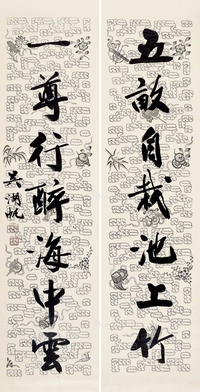 五畝自栽池上竹
一尊行醉海中雲
吳湖帆